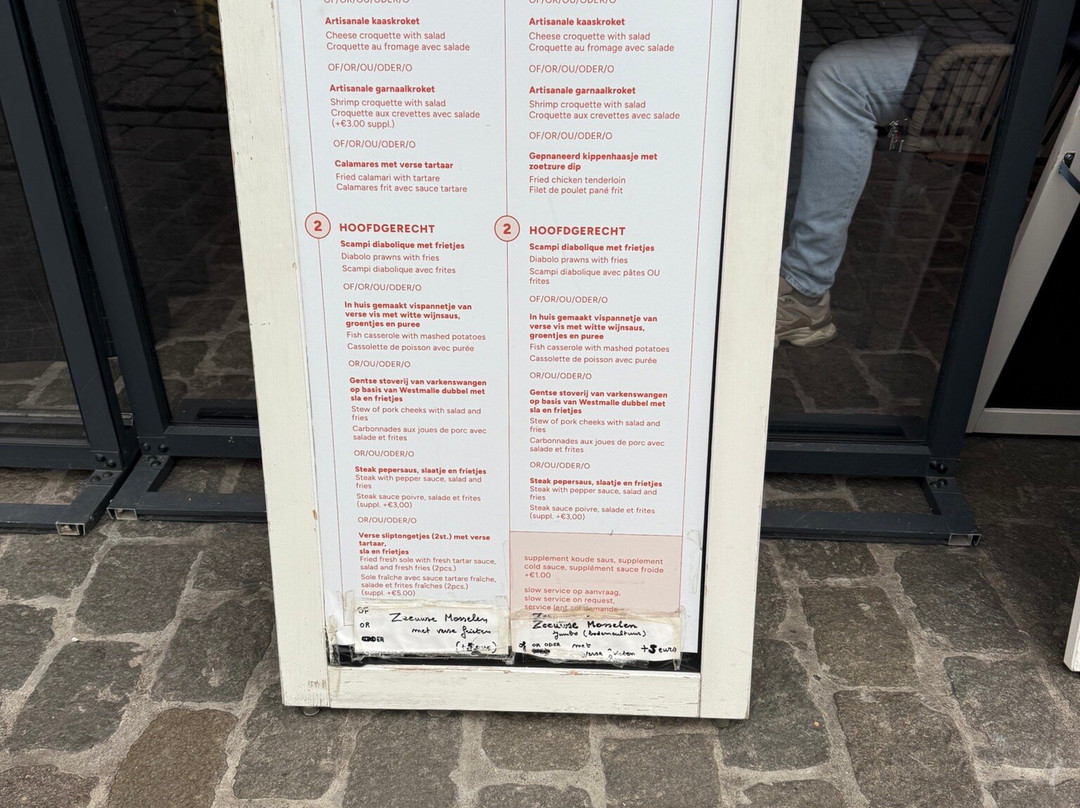 OF/OR/OU/ODER/O
Artisanale kaaskroket
Cheese croquette with salad
Croquette au fromage avec salade
OF/OR/OU/ODER/O
Artisanale garnaalkroket
Shrimp croquette with salad
Croquette aux crevettes avec salade
(+€3.00 suppl.)
OF/OR/OU/ODER/O
Calamares met verse tartaar
Fried calamari with tartare
Calamares frit avec sauce tartare
2 HOOFDGERECHT
Scampi diabolique met frietjes
Diabolo prawns with fries
Scampi diabolique avec frites
OF/OR/OU/ODER/O
In huis gemaakt vispannetje van
verse vis met witte wijnsaus,
groentjes en puree
Fish casserole with mashed potatoes
Cassolette de poisson avec purée
OR/OU/ODER/O
Gentse stoverij van varkenswangen
op basis van Westmalle dubbel met
sla en frietjes
Stew of pork cheeks with salad and
fries
Carbonnades aux joues de porc avec
salade et frites
OR/OU/ODER/O
Steak pepersaus, slaatje en frietjes
Steak with pepper sauce, salad and
fries
Steak sauce poivre, salade et frites
(suppl. +€3,00)
OR/OU/ODER/O
Verse sliptongetjes (2st.) met verse
tartaar,
sla en frietjes
Fried fresh sole with fresh tartar sauce,
salad and fresh fries (2pcs.)
Sole fraîche avec sauce tartare fraîche,
salade et frites fraîches (2pcs.)
(suppl. +€5.00)
OF
OR
Zeeuwse Mosselen
met verse frieten
OF/OR/OU/ODER/O
Artisanale kaaskroket
Cheese croquette with salad
Croquette au fromage avec salade
OF/OR/OU/ODER/O
Artisanale garnaalkroket
Shrimp croquette with salad
Croquette aux crevettes avec salade
OF/OR/OU/ODER/O
Gepnaneerd kippenhaasje met
zoetzure dip
Fried chicken tenderloin
Filet de poulet pané frit
2 HOOFDGERECHT
Scampi diabolique met frietjes
Diabolo prawns with fries
Scampi diabolique avec pâtes OU
frites
OF/OR/OU/ODER/O
In huis gemaakt vispannetje van
verse vis met witte wijnsaus,
groentjes en puree
Fish casserole with mashed potatoes
Cassolette de poisson avec purée
OR/OU/ODER/O
Gentse stoverij van varkenswangen
op basis van Westmalle dubbel met
sla en frietjes
Stew of pork cheeks with salad and
fries
Carbonnades aux joues de porc avec
salade et frites
OR/OU/ODER/O
Steak pepersaus, slaatje en frietjes
Steak with pepper sauce, salad and
fries
Steak sauce poivre, salade et frites
(suppl. +€3,00)
supplement koude saus, supplement
cold sauce, supplément sauce froide
+€1.00
slow service op aanvraag,
slow service on request,
service lent sur demande
Zeeuwse Mosselen
jumbo (bodemcultuur)
of OR ODER met
verse frieten +5 euro